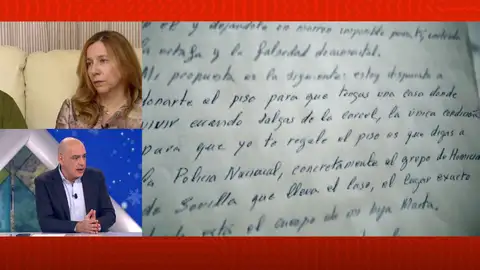 y dejándote
la estafa y la falsedad documental.
Mi propuesta es la siguiente: estoy dispuesto a
donarte el piso para que tengas una casa donde
vivir cuando salgas de la carcel, la única condición
para que yo te regale el piso es que digas a
la Policía Nacional, concretamente al grupo de Homicidios
de Sevilla que lleva el caso, el lugar exacto
está el cuerpo de mi hija Marta.